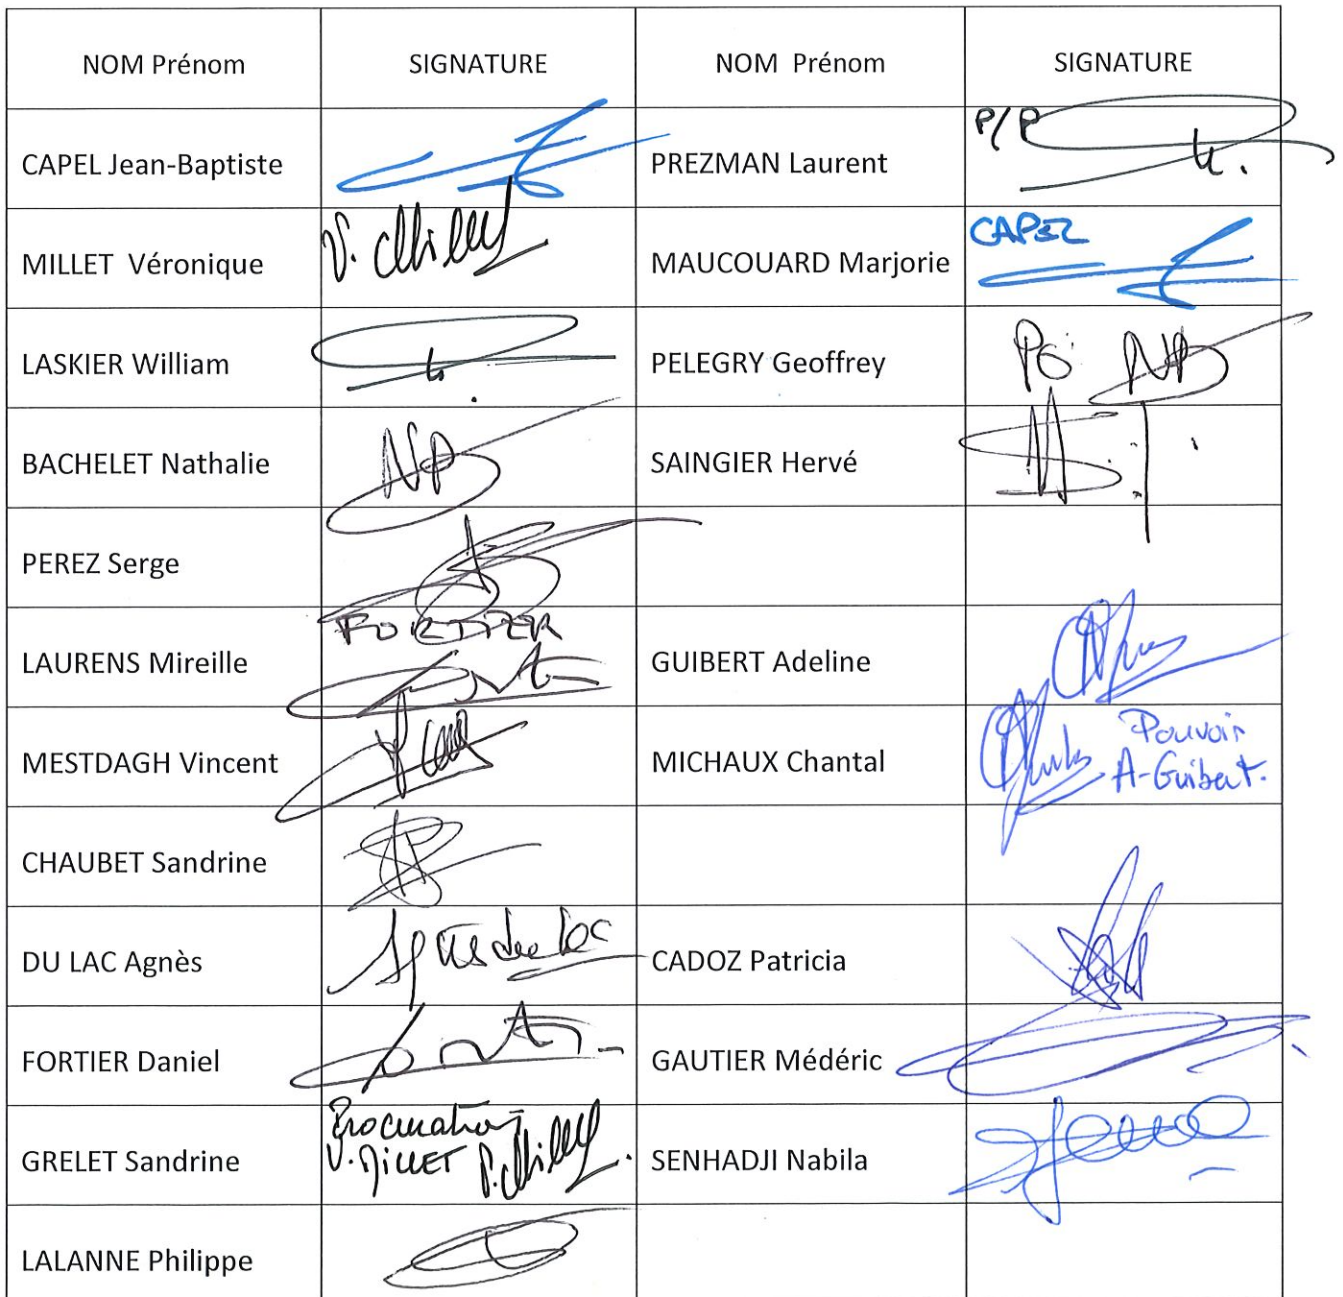 NOM Prénom SIGNATURE NOM Prénom SIGNATURE
CAPEL Jean-Baptiste PREZMAN Laurent P/P
MILLET Véronique V. Millet MAUCOUARD Marjorie CAPEL
LASKIER William PELEGRY Geoffrey PG NB
BACHELET Nathalie NB SAINGIER Hervé
PEREZ Serge
LAURENS Mireille FORTIER GUIBERT Adeline
MESTDAGH Vincent MICHAUX Chantal Pouvoir
A-Guibert.
CHAUBET Sandrine
DU LAC Agnès Agnès du Lac CADOZ Patricia
FORTIER Daniel GAUTIER Médéric
GRELET Sandrine Procuration
V. MILLET V. Millet SENHADJI Nabila
LALANNE Philippe